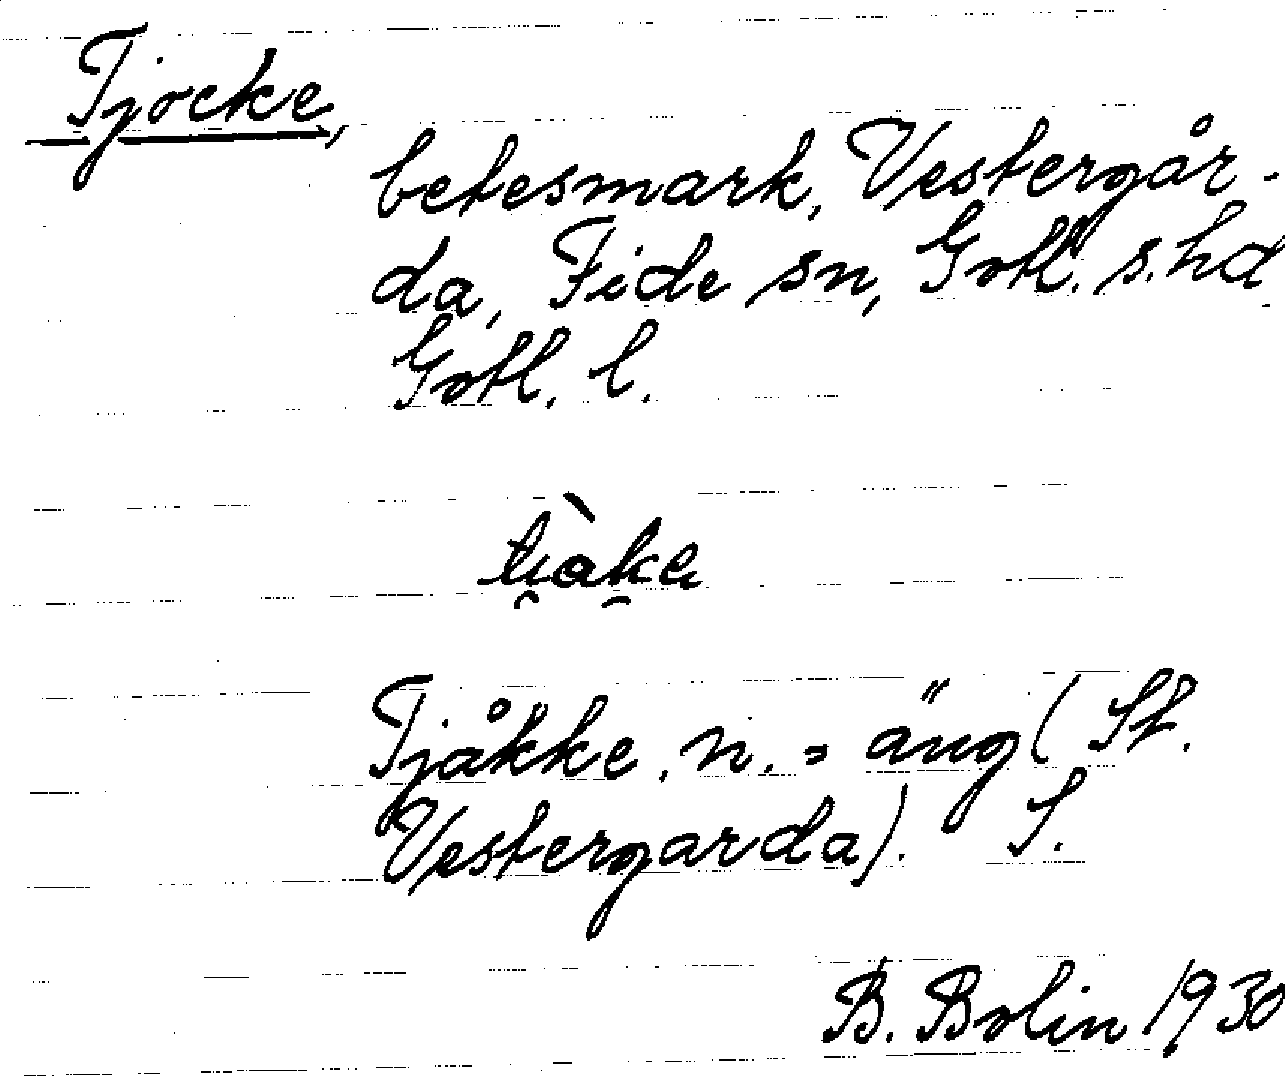 Tjocke,
betesmark, Vestergår-
da, Fide sn, Gotl. s. hd
Gotl. l.
Tjåkke. n. = äng (St.
Vestergarda). S.
B. Bolin 1930